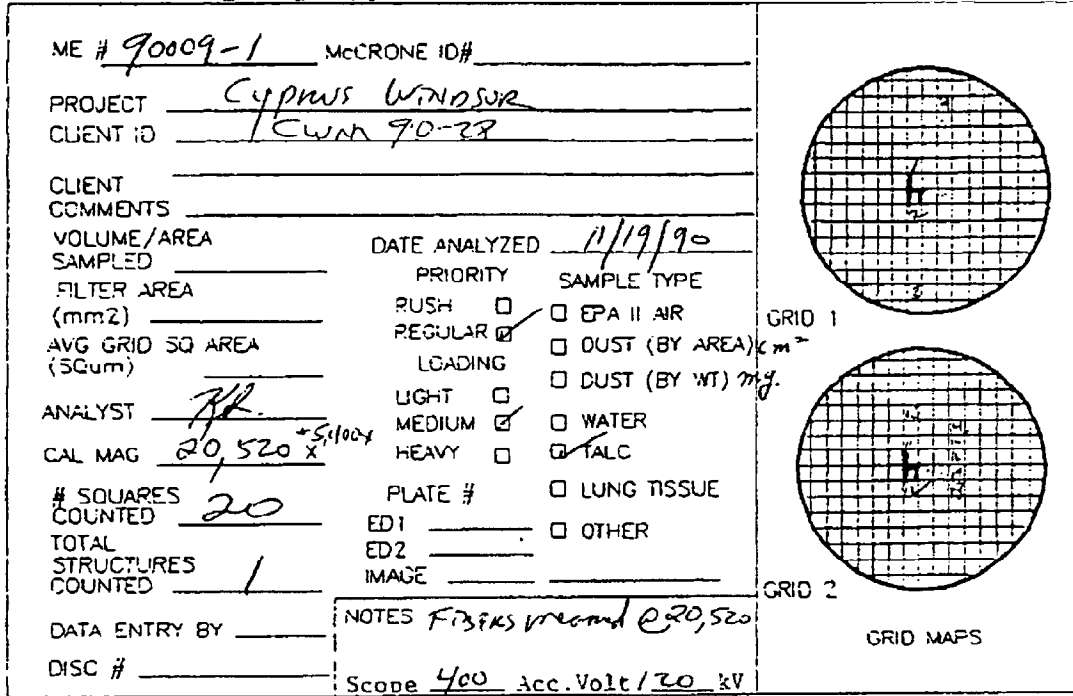 ME # 90009-1 McCRONE ID#
PROJECT Cyprus Windsor
CLIENT ID CWM 90-28
CLIENT
COMMENTS
VOLUME/AREA
SAMPLED
FILTER AREA
(mm2)
AVG GRID SQ AREA
(SQum)
ANALYST
CAL MAG 20,520 x
# SQUARES
COUNTED 20
TOTAL
STRUCTURES
COUNTED 1
DATA ENTRY BY
DISC #
DATE ANALYZED 11/19/90
PRIORITY
RUSH
REGULAR
LOADING
LIGHT
MEDIUM
HEAVY
PLATE #
ED1
ED2
IMAGE
SAMPLE TYPE
EPA II AIR
DUST (BY AREA) cm²
DUST (BY WT) mg.
WATER
TALC
LUNG TISSUE
OTHER
NOTES Fibers @ 20,520
Scope 400 Acc.Volt 120 kV
GRID 1
GRID 2
GRID MAPS